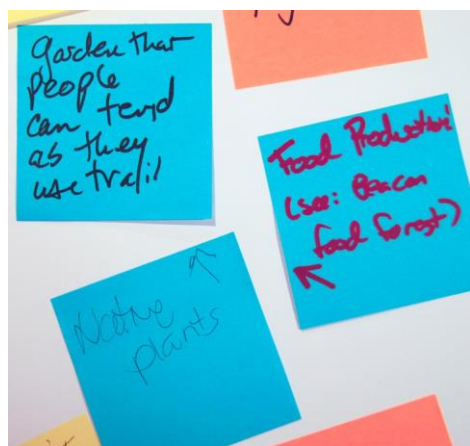 garden that
people
can tend
as they
use trail
Food Production!
(see: Beacon
food forest)
Native
plants